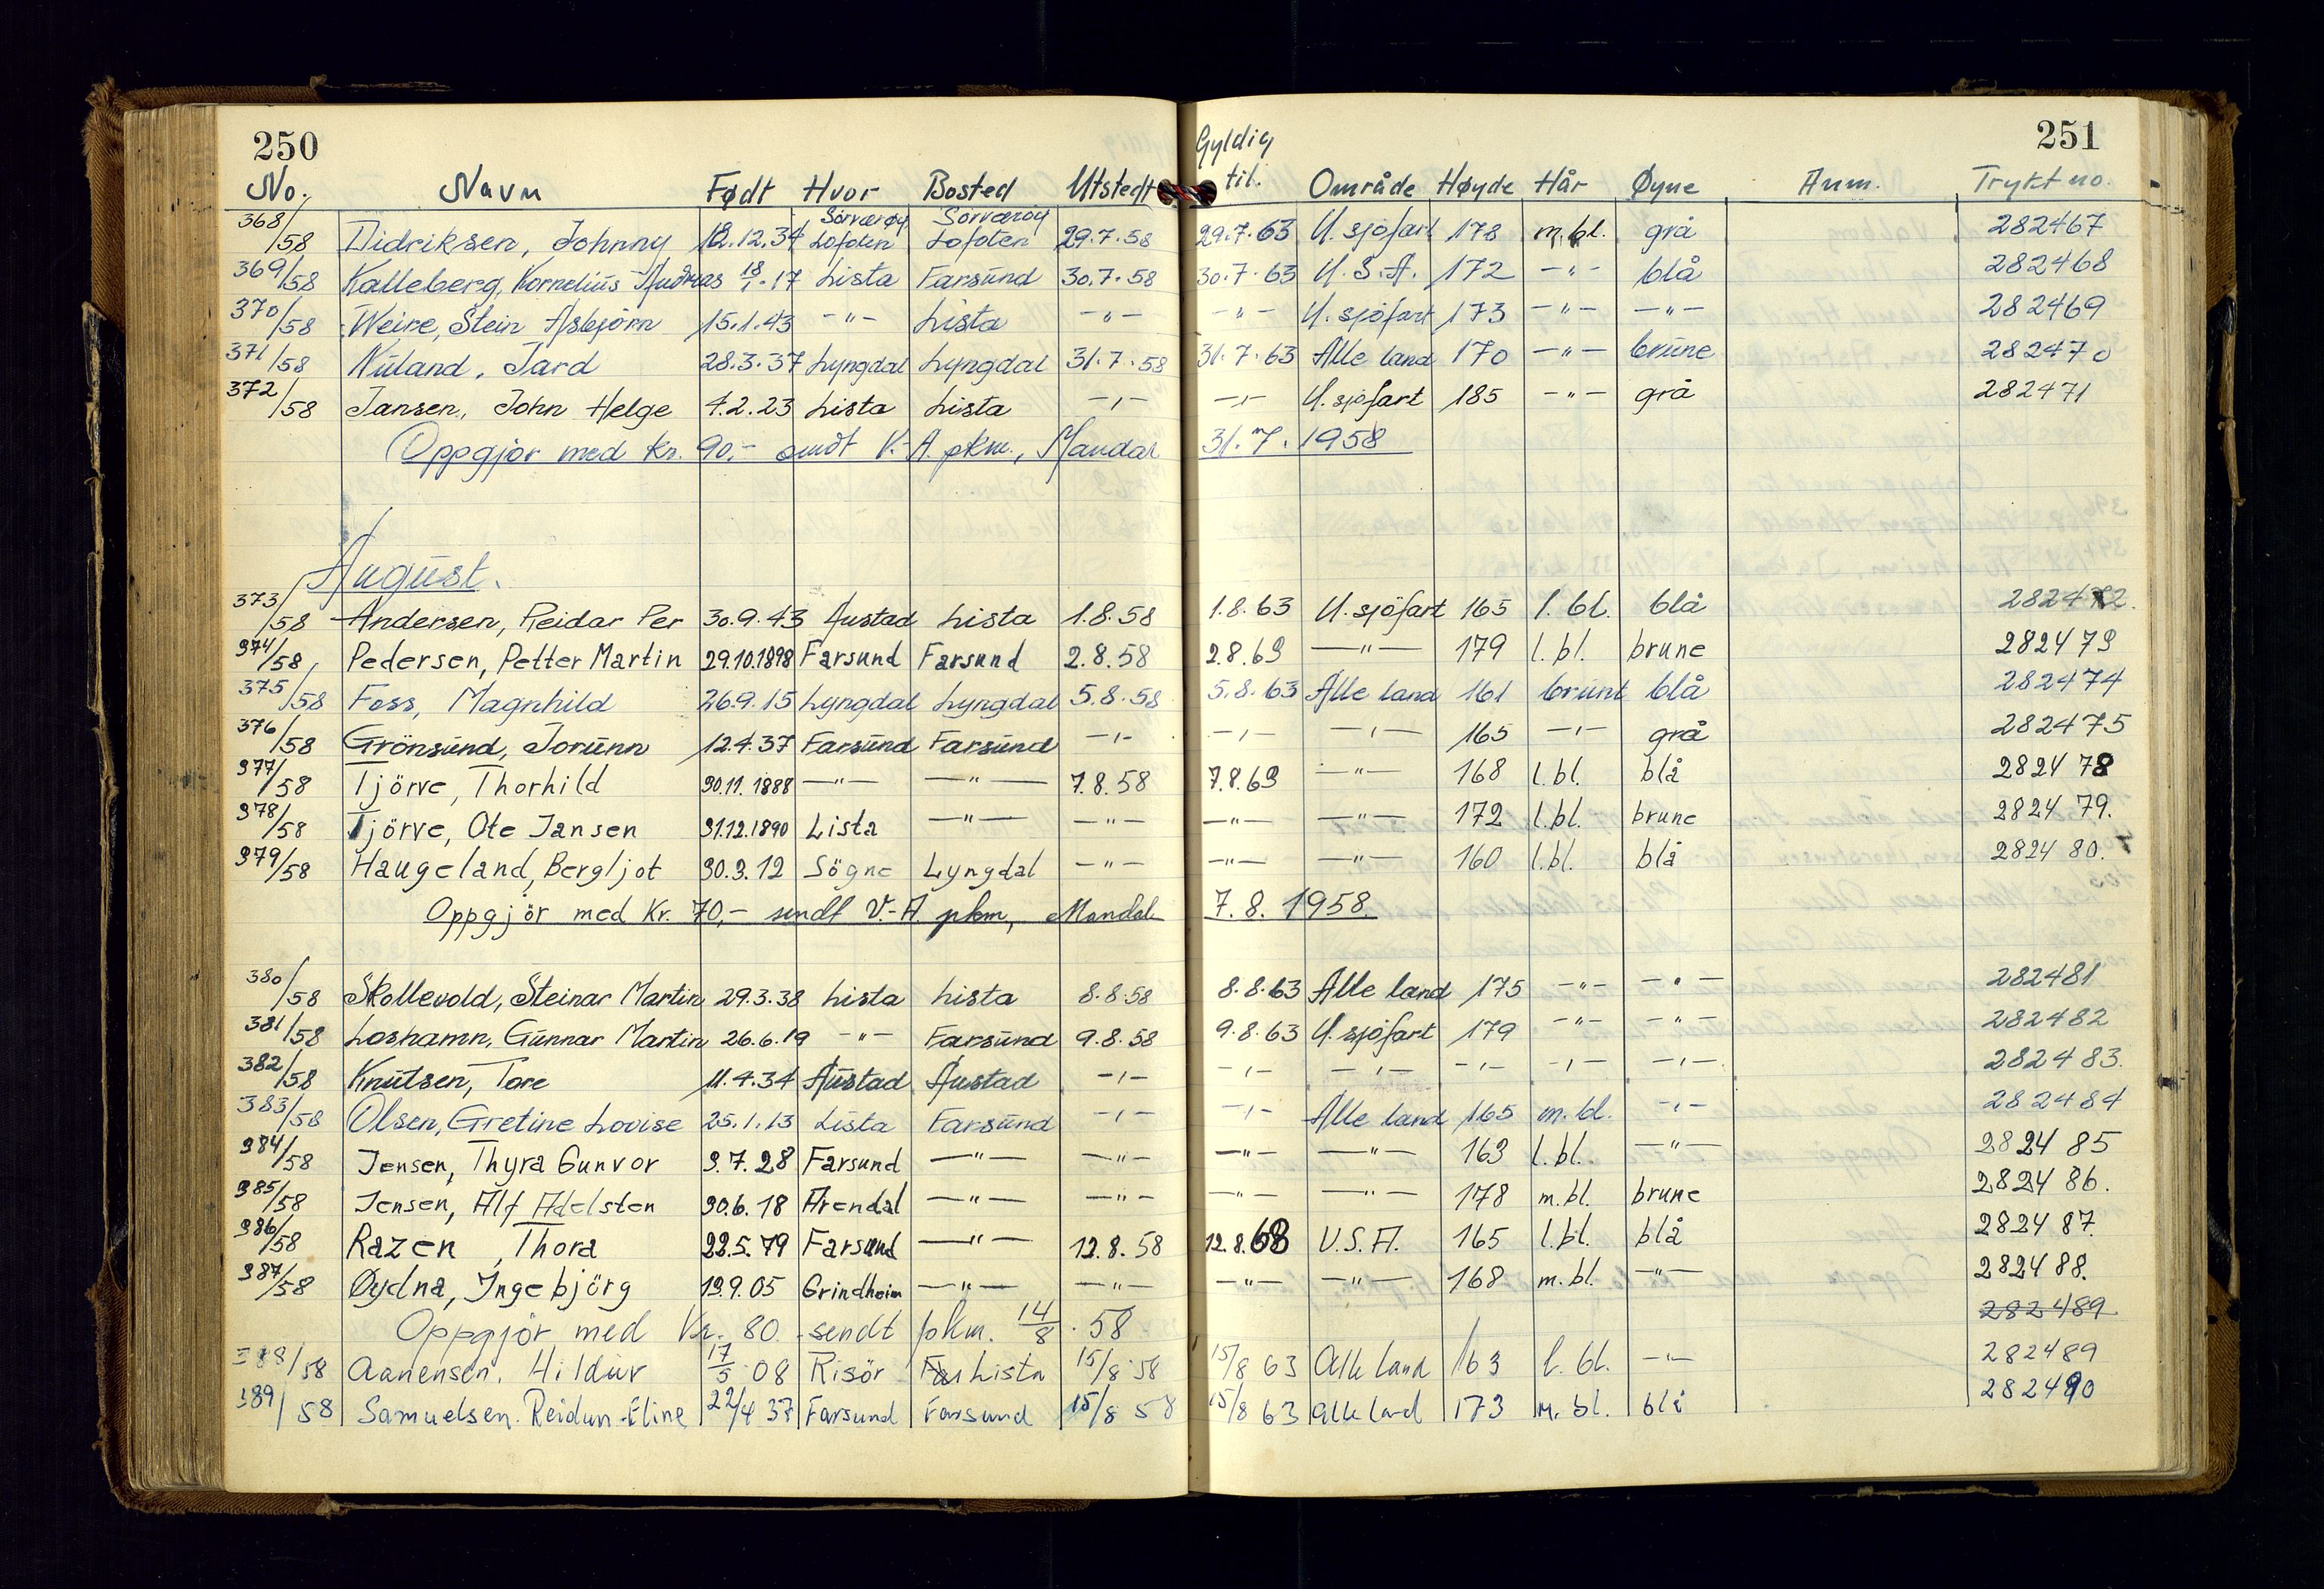 250
251
No. Navn Født Hvor Bosted Utstedt Gyldig til. Område Høyde Hår Øyne Anm. Trykt no.
368/58 Didriksen, Johnny 12.12.34 Sørværøy Lofoten Sørværøy Lofoten 29.7.58 29.7.63 U. sjöfart 178 m.bl. grå 282467
369/58 Kalleberg, Kornelius Andreas 18/1.17 Lista Farsund 30.7.58 30.7.63 U.S.A. 172 -"- blå 282468
370/58 Weire, Stein Asbjörn 15.1.43 -"- Lista -"- -"- U. sjöfart 173 -"- -"- 282469
371/58 Nuland, Tard 28.3.37 Lyngdal Lyngdal 31.7.58 31.7.63 Alle land 170 -"- brune 282470
372/58 Jansen, John Helge 4.2.23 Lista Lista -,- -,- U. sjöfart 185 -"- grå 282471
Oppgjör med kr. 90,- sendt V.-A. pkm., Mandal 31.7.1958
August.
373/58 Andersen, Reidar Per 30.9.43 Austad Lista 1.8.58 1.8.63 U. sjöfart 165 l. bl. blå 282472.
374/58 Pedersen, Petter Martin 29.10.1898 Farsund Farsund 2.8.58 2.8.63 -"- 179 l.bl. brune 282473
375/58 Foss, Magnhild 26.9.15 Lyngdal Lyngdal 5.8.58 5.8.63 Alle land 161 brunt blå 282474
376/58 Grönsund, Jorunn 12.4.37 Farsund Farsund -,- -,- -,- 165 -,- grå 282475
377/58 Tjörve, Thorhild 30.11.1888 -"- -"- 7.8.58 7.8.63 -"- 168 l.bl. blå 282478
378/58 Tjörve, Ote Jansen 31.12.1890 Lista -"- -"- -"- -"- 172 l.bl. brune 282479.
379/58 Haugeland, Bergljot 30.3.12 Sögne Lyngdal -"- -"- -"- 160 l.bl. blå 282480.
Oppgjör med Kr. 70,- sendt V.-A pkm, Mandal 7.8.1958.
380/58 Skollevold, Steinar Martin 29.3.38 Lista Lista 8.8.58 8.8.63 Alle land 175 -"- -"- 282481
381/58 Loshamn, Gunnar Martin 26.6.19 -"- Farsund 9.8.58 9.8.63 U. sjöfart 179 -"- -"- 282482
382/58 Knutsen, Tore 11.4.34 Austad Austad -,- -,- -,- -,- -,- -,- 282483.
383/58 Olsen, Gretine Lovise 25.1.13 Lista Farsund -,- -,- Alle land 165 m.bl. -,- 282484
384/58 Jensen, Thyra Gunvor 3.7.28 Farsund -"- -"- -"- -"- 163 l.bl. -"- 282485
385/58 Jensen, Alf Adelsten 30.6.18 Arendal -"- -"- -"- -"- 178 m.bl. brune 282486.
386/58 Razen, Thora 22.5.79 Farsund -"- 12.8.58 12.8.63 U.S.A. 165 l.bl. blå 282487.
387/58 Øydna, Ingebjörg 13.9.05 Grindheim -"- -"- -"- -"- 168 m.bl. -"- 282488.
Oppgjör med Kr. 80.- sendt pkm. 14/8.58 282489
388/58 Aanensen, Hildur 17/5 08 Risör Lista 15/8 58 15/8 63 Alle land 163 l. bl. -"- 282489
389/58 Samuelsen, Reidun Eline 22/4 37 Farsund Farsund 15/8 58 15/8 63 alle land 173 m. bl. blå 282490